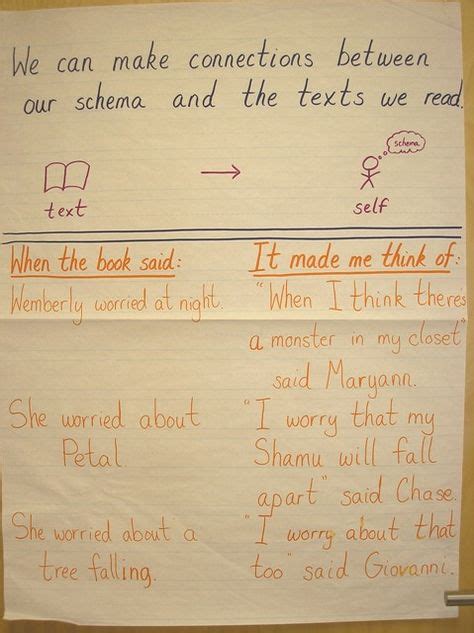 We can make connections between
our schema and the texts we read.
schema
text → self
When the book said: It made me think of:
Wemberly worried at night. "When I think there's
a monster in my closet"
said Maryann.
She worried about "I worry that my
Petal. Shamu will fall
apart" said Chase.
She worried about a "I worry about that
tree falling. too" said Giovanni.